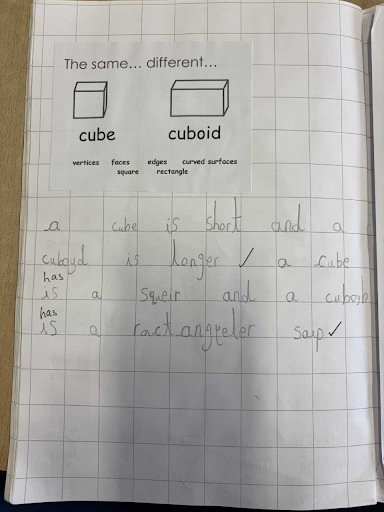 The same... different...
cube cuboid
vertices faces edges curved surfaces
square rectangle
a cube is short and a
cuboyd is longer ✓ a cube
has
is a squeir and a cubosh
has
is a ractangqeler saip ✓